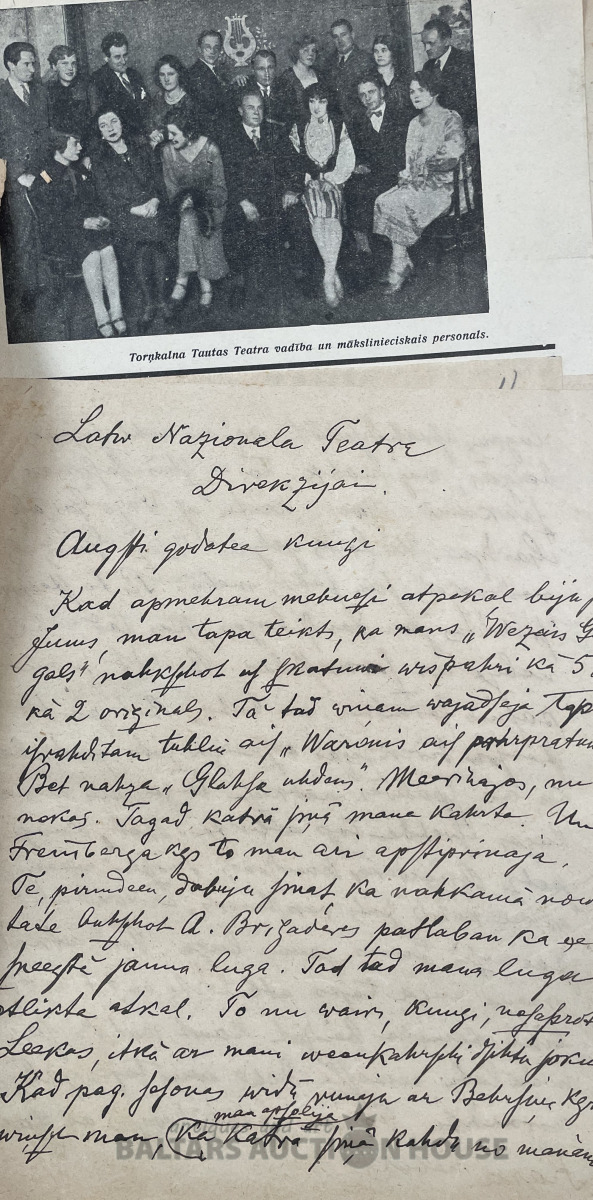 Torņkalna Tautas Teatra vadība un mākslinieciskais personals.
Latw Nazionala Teatra
Direkzijai.
Augsti godatee kungi
Kad apmehram mehnesi atpakal biju
Jums, man tapa teikts, ka mans „Wezais
gals" nahkshot us skatuwi wispahri kā
kā 2 originals. Tā tad winam wajadseja
israhditam tuhlin ais „Waronis aiz pahrpratuma
Bet nahza „Glahse uhdens". Meerinajos, nu
nokas. Tagad katrā sinā mana kahrta.
Freimberga kgs to man ari apstiprinaja.
Te, pirmdeen, dabuju sinat, ka nahkamā
A. Brigaderes patlaban
jauna luga. Tad tad mana luga
atlikta atkal. To nu wairs, kungi,
Leekas, itkā ar mani weenkahrschi
Kad pag. sesonas widū runaju ar Behrsin kgu
man apsolija
winsch man, ka katrā sinā kahdu no manam
BALTARS AUCTION HOUSE